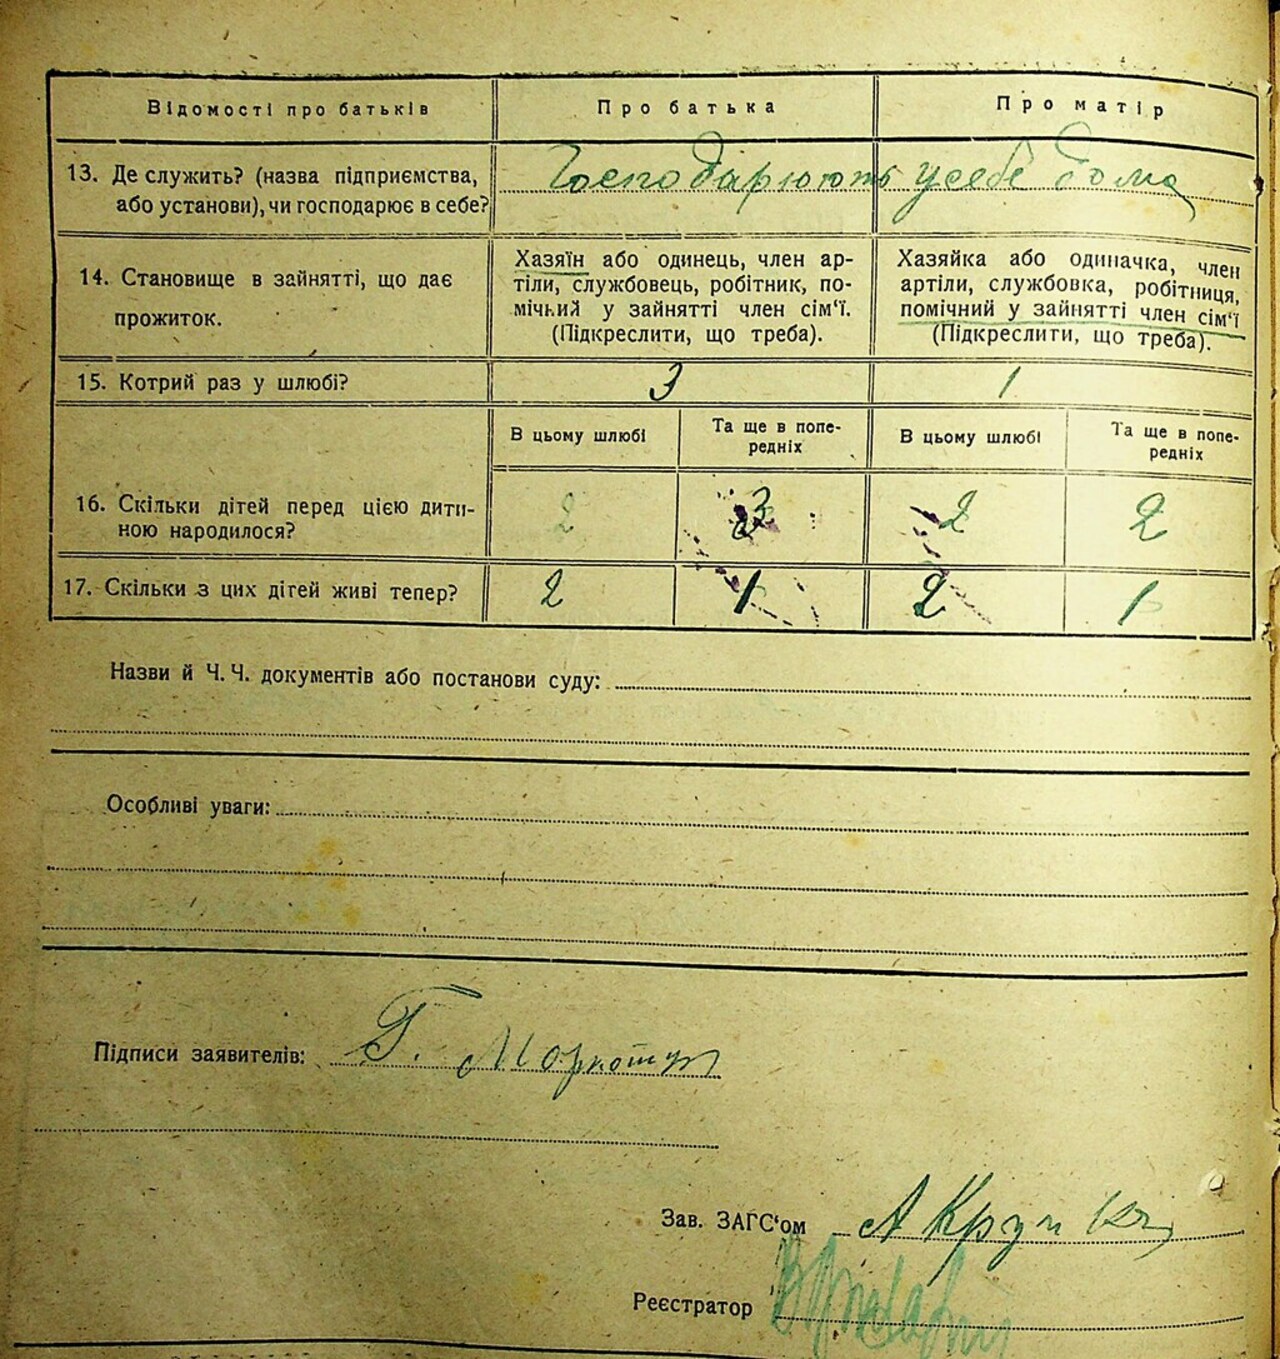 Відомості про батьків Про батька Про матір
13. Де служить? (назва підприємства, або установи), чи господарює в себе? Господарюють у себе дома
14. Становище в зайнятті, що дає прожиток.
Хазяїн або одинець, член ар-
тіли, службовець, робітник, по-
мічний у зайнятті член сім'ї.
(Підкреслити, що треба).
Хазяйка або одиначка, член
артіли, службовка, робітниця,
помічний у зайнятті член сім'ї
(Підкреслити, що треба).
15. Котрий раз у шлюбі? 3 1
В цьому шлюбі Та ще в попе-редніх В цьому шлюбі Та ще в попе-редніх
16. Скільки дітей перед цією дити-
ною народилося? 2 3 2 2
17. Скільки з цих дітей живі тепер? 2 1 2 1
Назви й Ч. Ч. документів або постанови суду:
Особливі уваги:
Підписи заявителів: Г. Моркотун
Зав. ЗАГС'ом А Крупка
Реєстратор